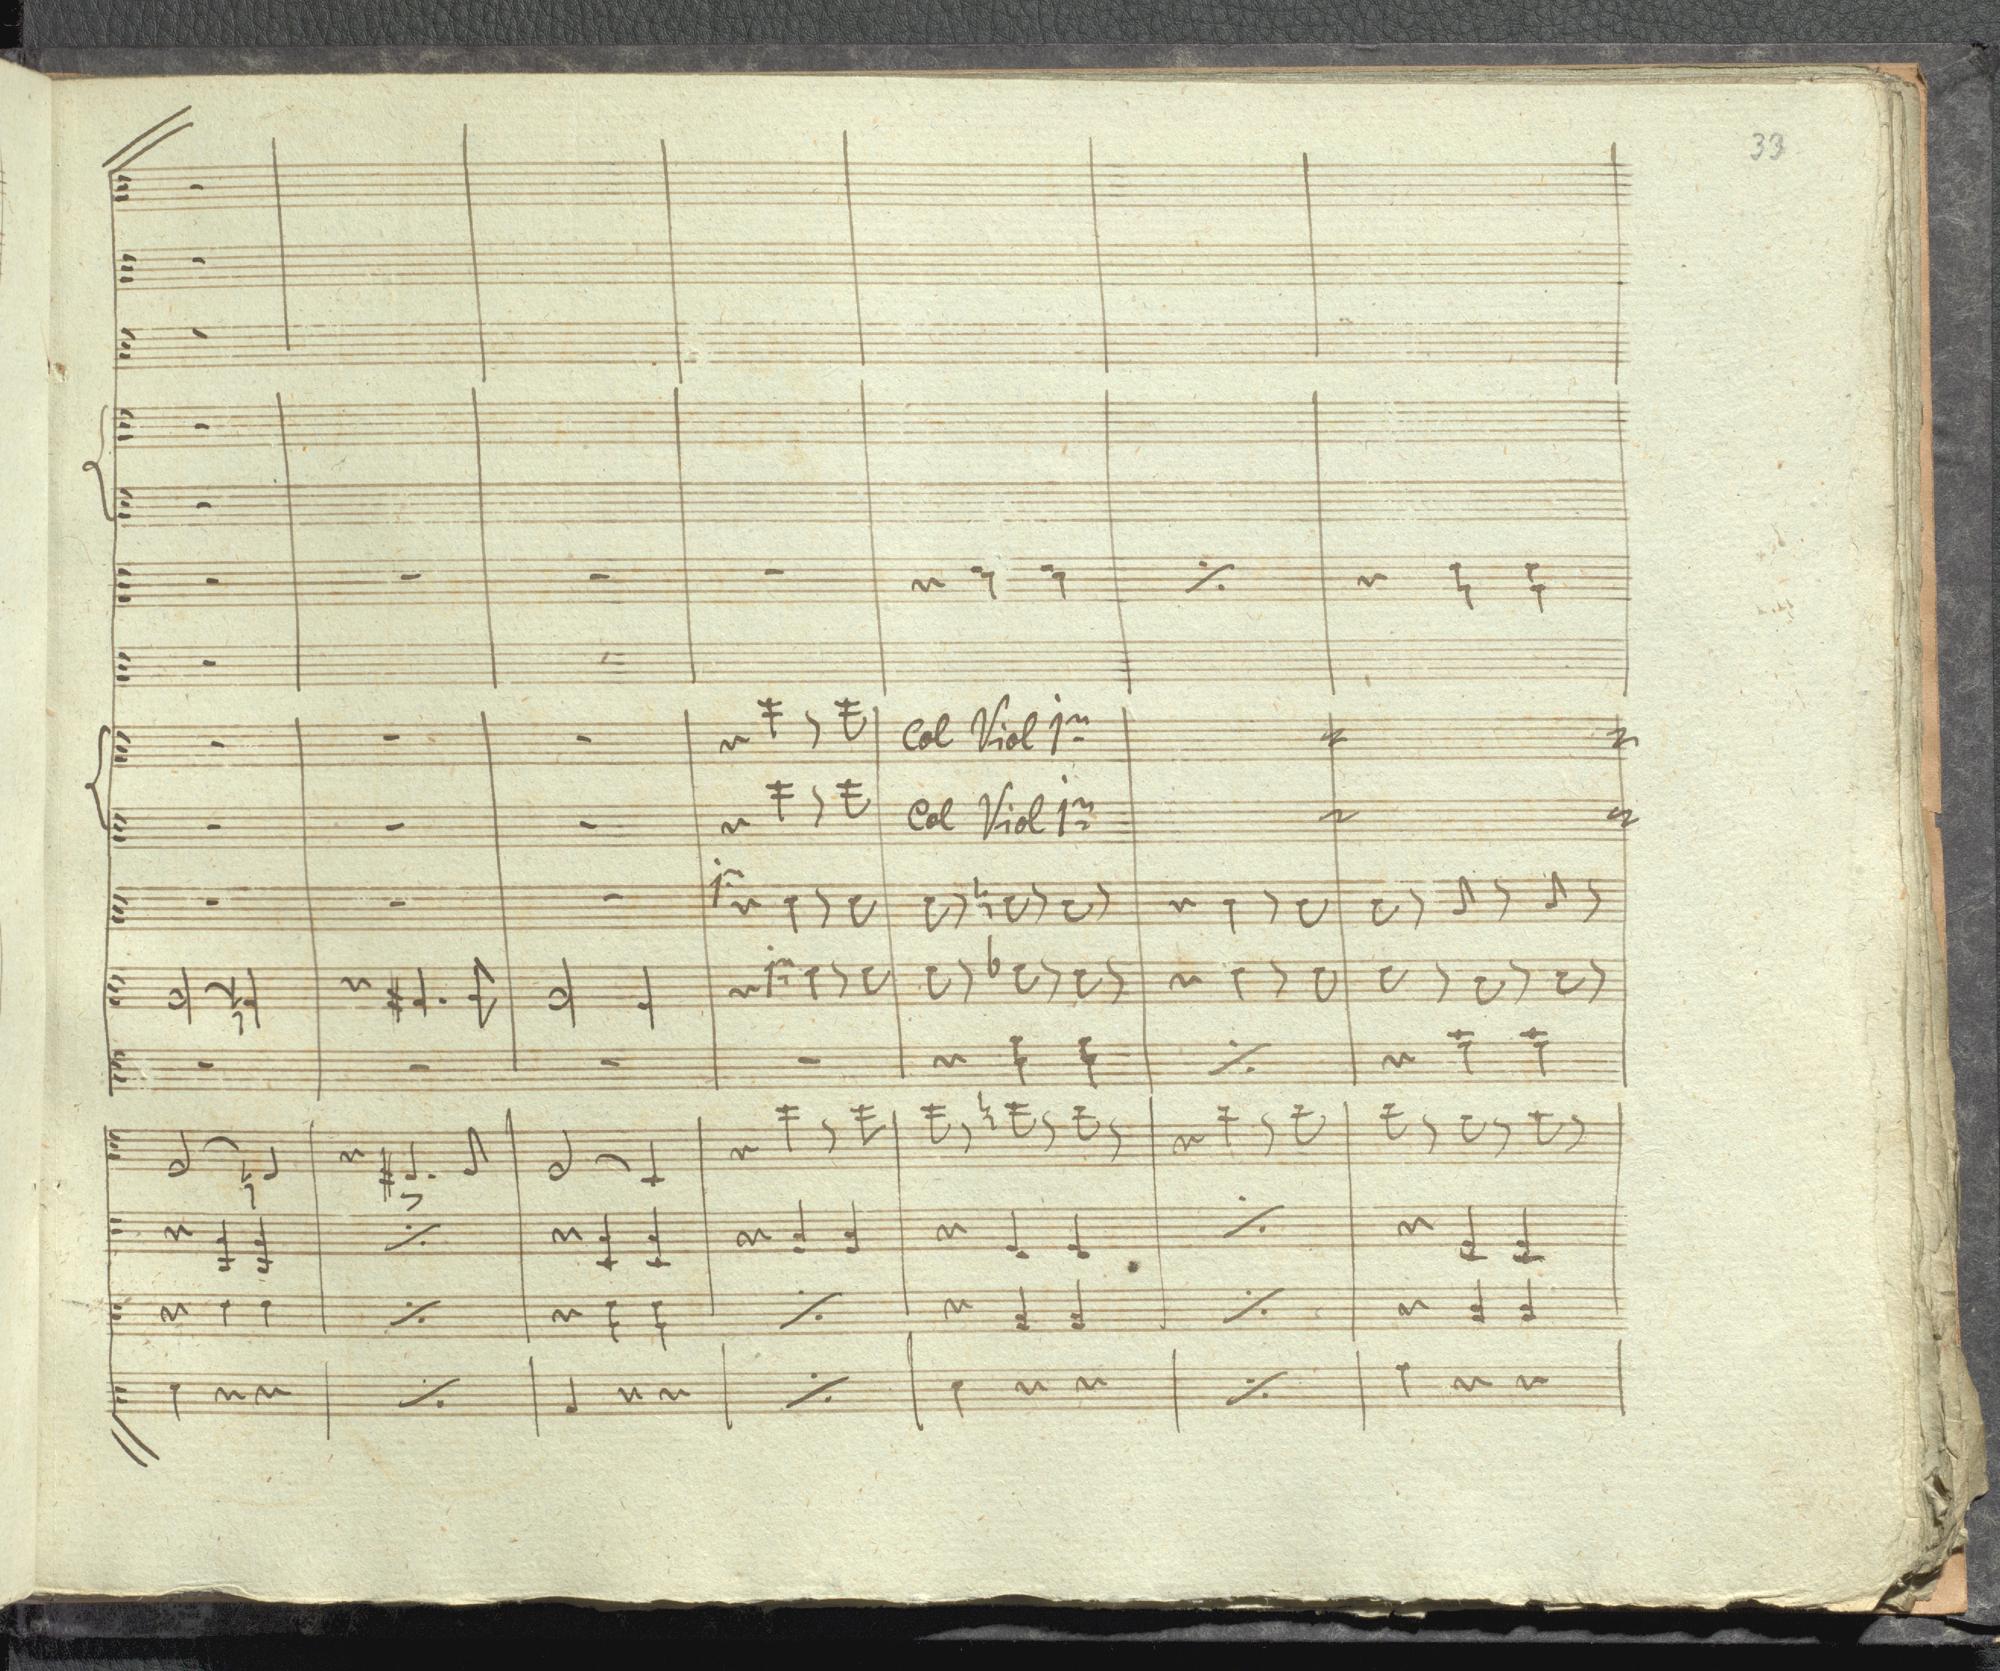 33
Col Viol 1mo
Col Viol 1mo